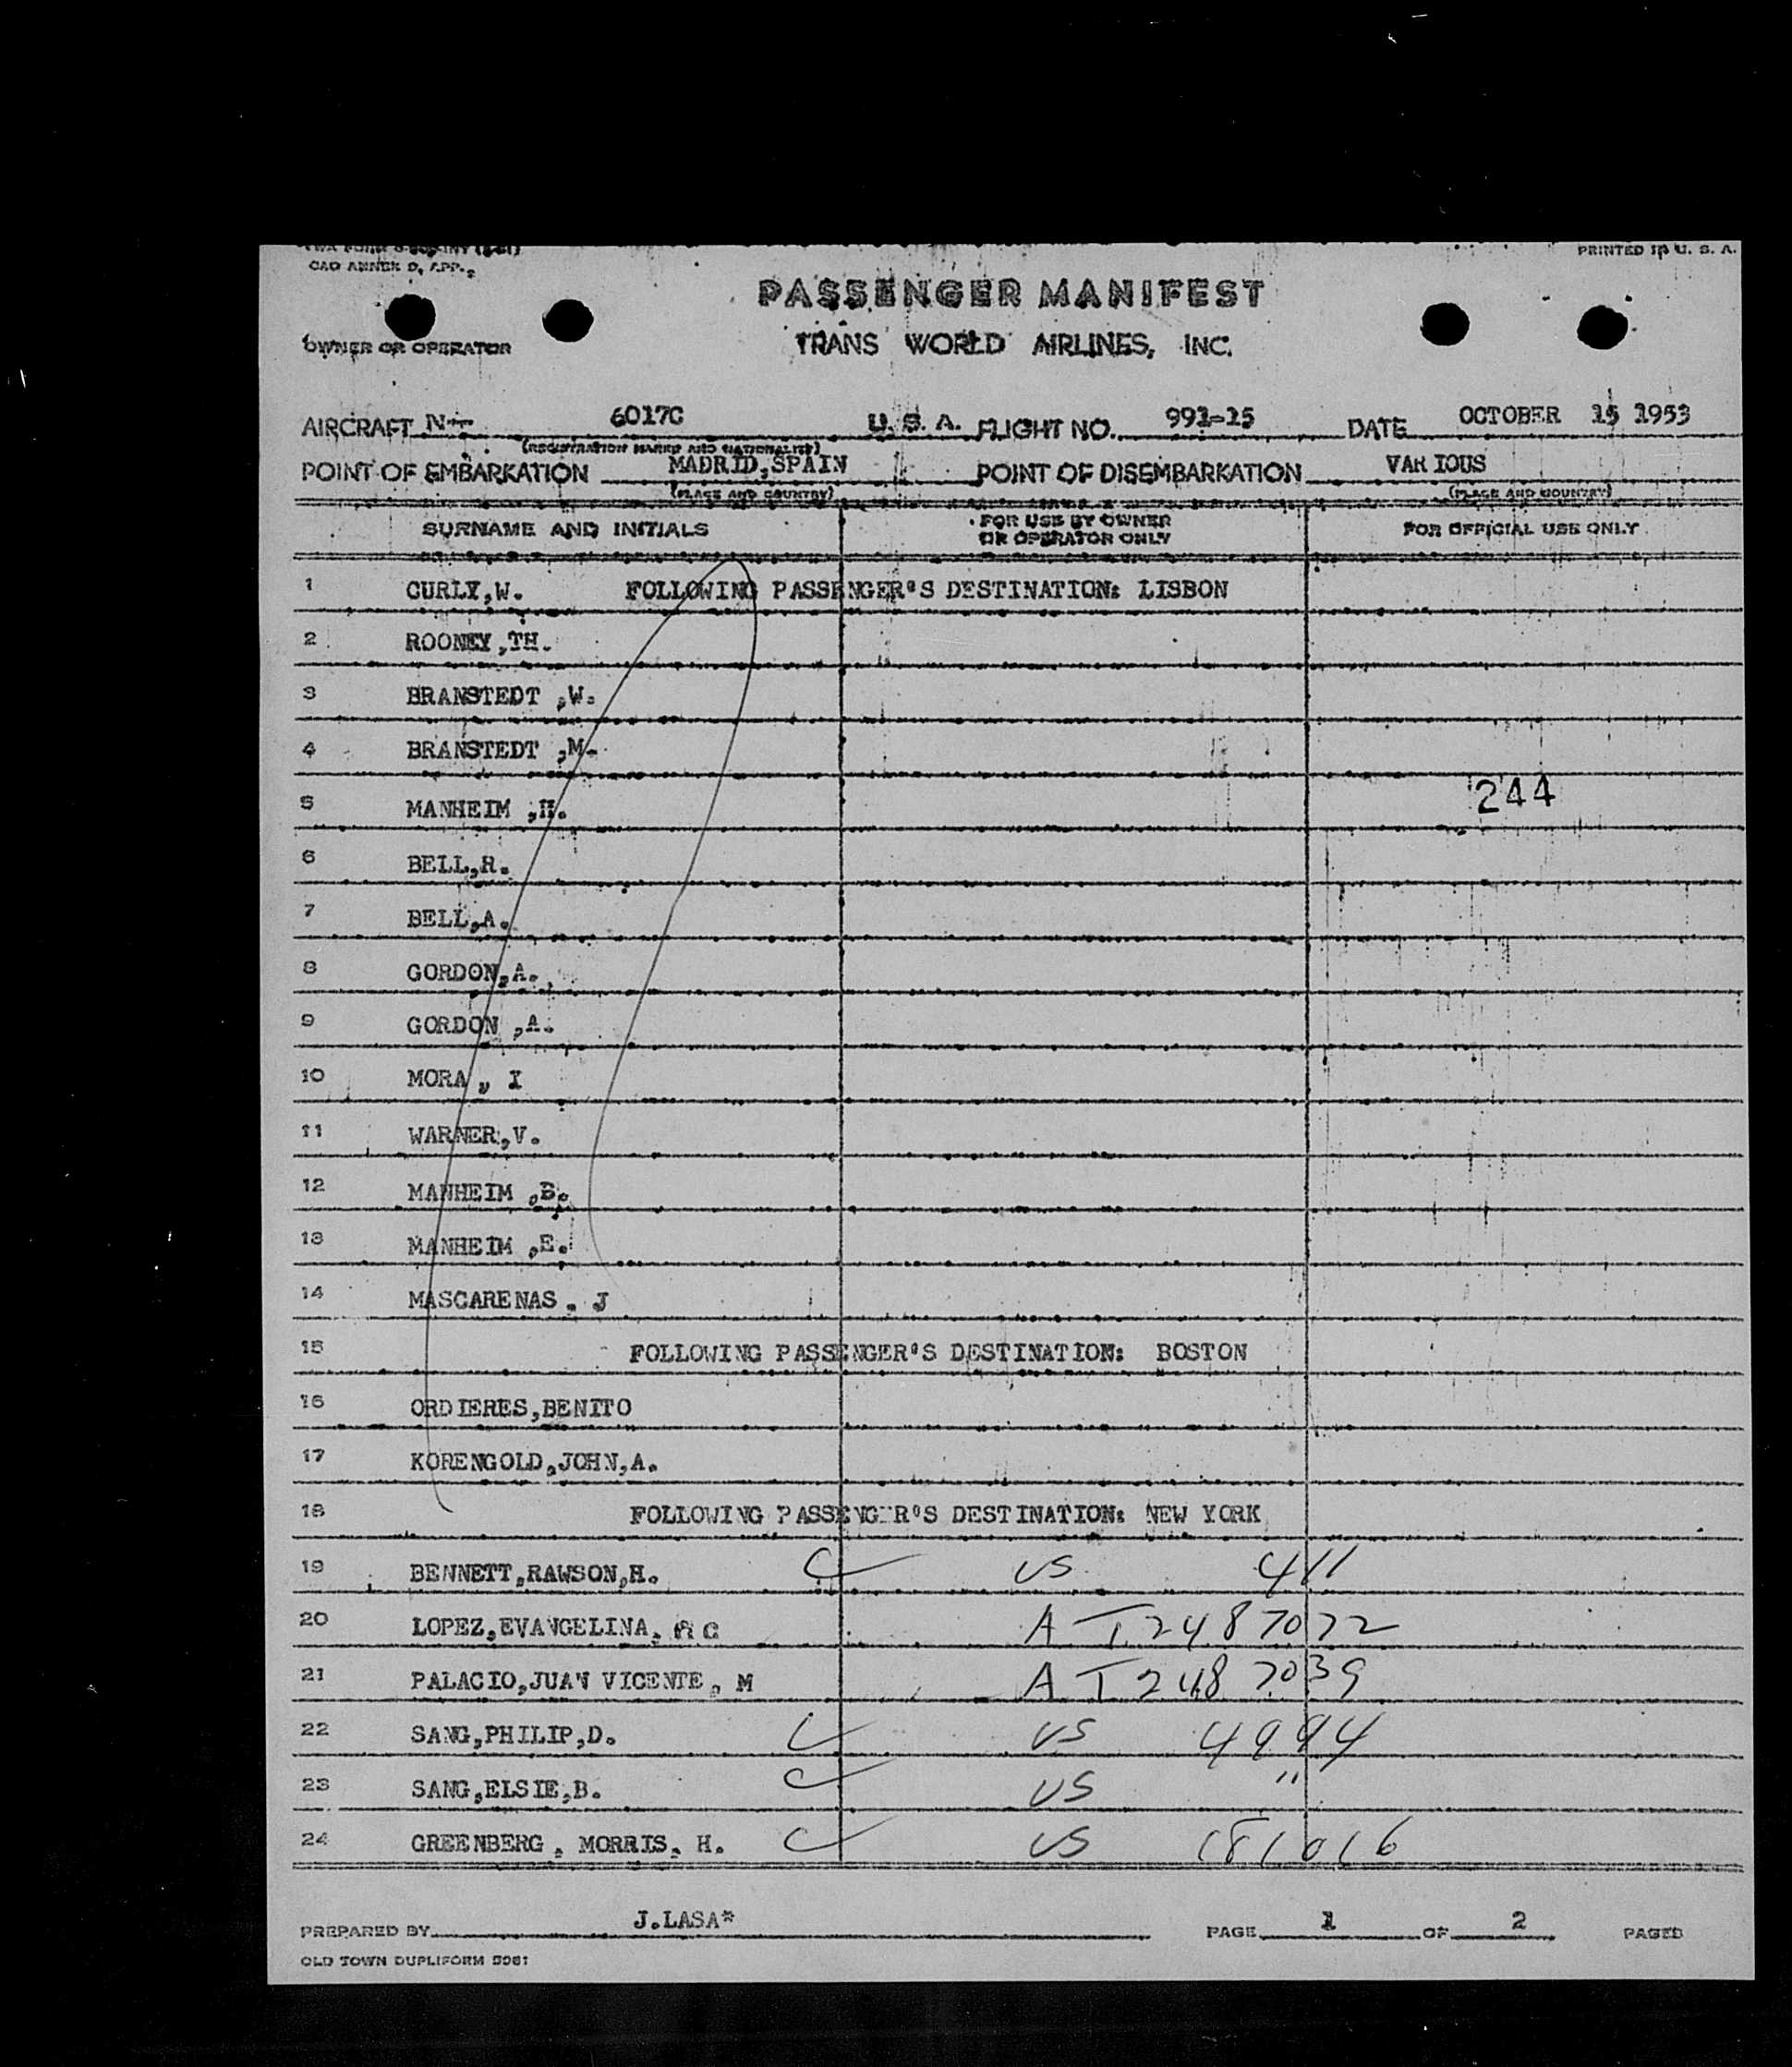 CAO ANNEX D, APP.
PRINTED IN U. S. A.
PASSENGER MANIFEST
OWNER OR OPERATOR
TRANS WORLD AIRLINES, INC.
AIRCRAFT N- 6017C U. S. A. FLIGHT NO. 991-15 DATE OCTOBER 15 1953
(REGISTRATION MARKS AND NATIONALITY)
POINT OF EMBARKATION MADRID,SPAIN POINT OF DISEMBARKATION VARIOUS
(PLACE AND COUNTRY) (PLACE AND COUNTRY)
SURNAME AND INITIALS FOR USE BY OWNER OR OPERATOR ONLY FOR OFFICIAL USE ONLY
1 CURLY,W. FOLLOWING PASSENGER'S DESTINATION: LISBON
2 ROONEY,TH.
3 BRANSTEDT ,W.
4 BRANSTEDT ,M.
5 MANHEIM ,H. 244
6 BELL,R.
7 BELL,A.
8 GORDON,A.
9 GORDON ,A.
10 MORA, I
11 WARNER,V.
12 MANHEIM ,B.
13 MANHEIM ,E.
14 MASCARENAS . J
15 FOLLOWING PASSENGER'S DESTINATION: BOSTON
16 ORDIERES,BENITO
17 KORENGOLD,JOHN,A.
18 FOLLOWING PASSENGER'S DESTINATION: NEW YORK
19 BENNETT,RAWSON,H. US 411
20 LOPEZ,EVANGELINA, A T2487072
21 PALACIO,JUAN VICENTE, M A T2487039
22 SANG,PHILIP,D. US 4994
23 SANG,ELSIE,B. US "
24 GREENBERG , MORRIS, H. US 181016
PREPARED BY J.LASA* PAGE 1 OF 2 PAGES
OLD TOWN DUPLIFORM